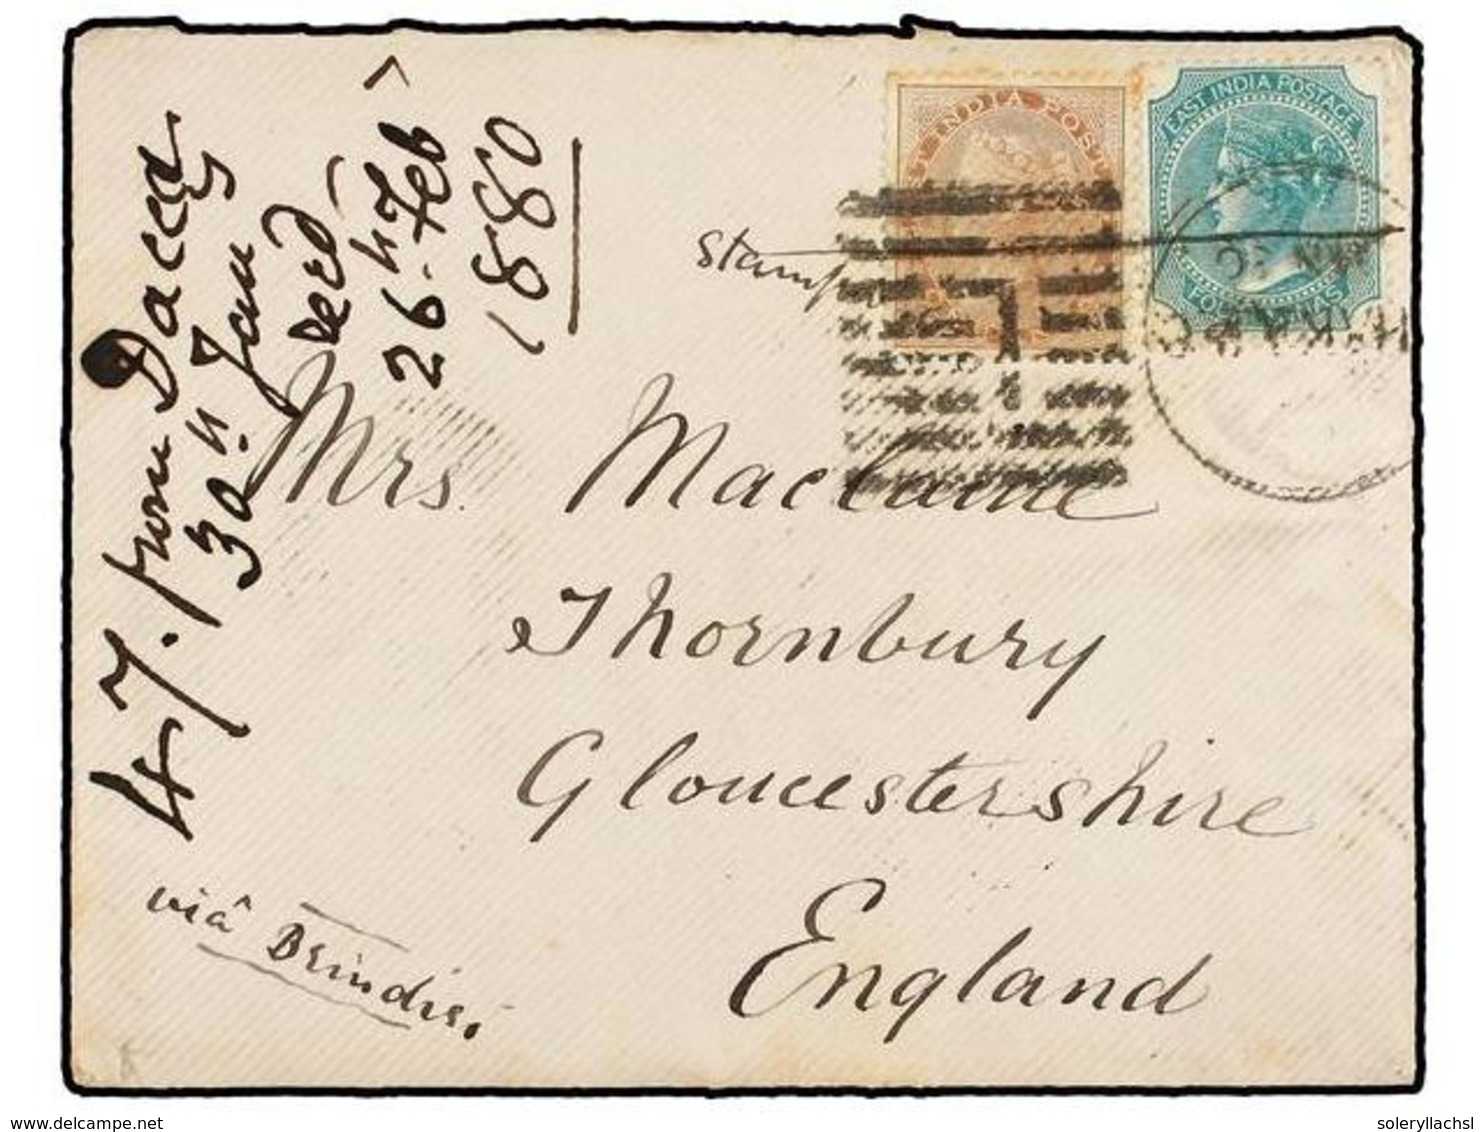 47. from Dacca
30th Jan
recd
26th Feb
1880
stamp
EAST INDIA POSTAGE
INDIA POS
FO AS
Mrs. Maclaine
Thornbury
Gloucestershire
England
viâ Brindisi
delcampe.net
soleryllachsl